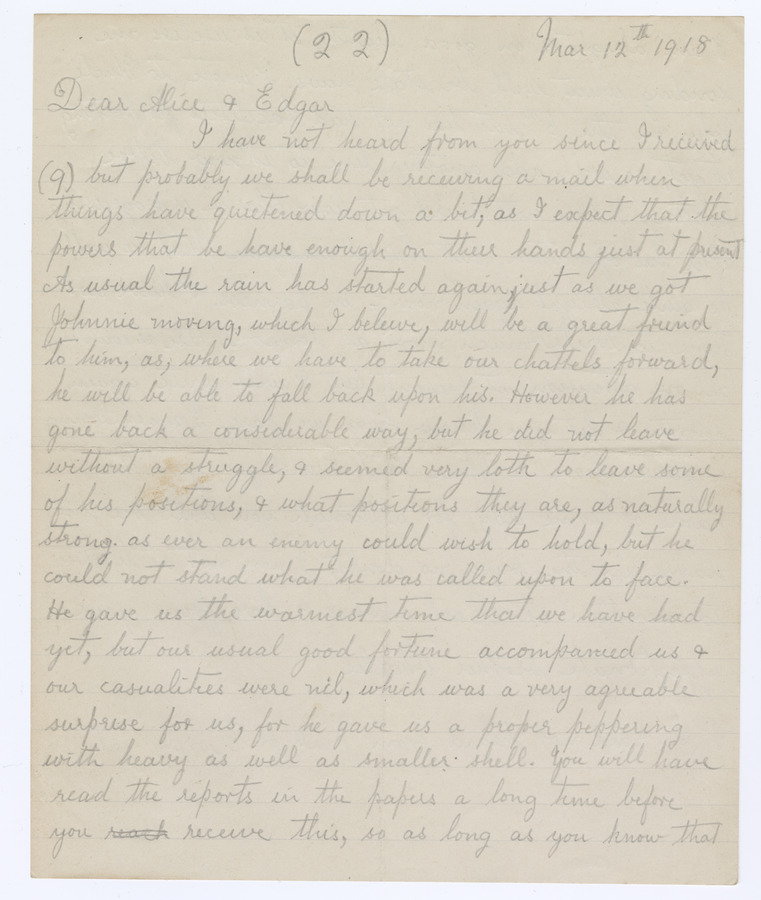 (22) Mar 12th 1918
Dear Alice & Edgar
I have not heard from you since I received
(9) but probably we shall be receiving a mail when
things have quietened down a bit, as I expect that the
powers that be have enough on their hands just at present
As usual the rain has started again, just as we got
Johnnie moving, which I beleive, will be a great friend
to him, as, where we have to take our chattels forward,
he will be able to fall back upon his. However he has
gone back a considerable way, but he did not leave
without a struggle, & seemed very loth to leave some
of his positions, & what positions they are, as naturally
strong as ever an enemy could wish to hold, but he
could not stand what he was called upon to face.
He gave us the warmest time that we have had
yet, but our usual good fortune accompanied us &
our casualities were nil, which was a very agreeable
surprise for us, for he gave us a proper peppering
with heavy as well as smaller shell. You will have
read the reports in the papers a long time before
you reach receive this, so as long as you know that